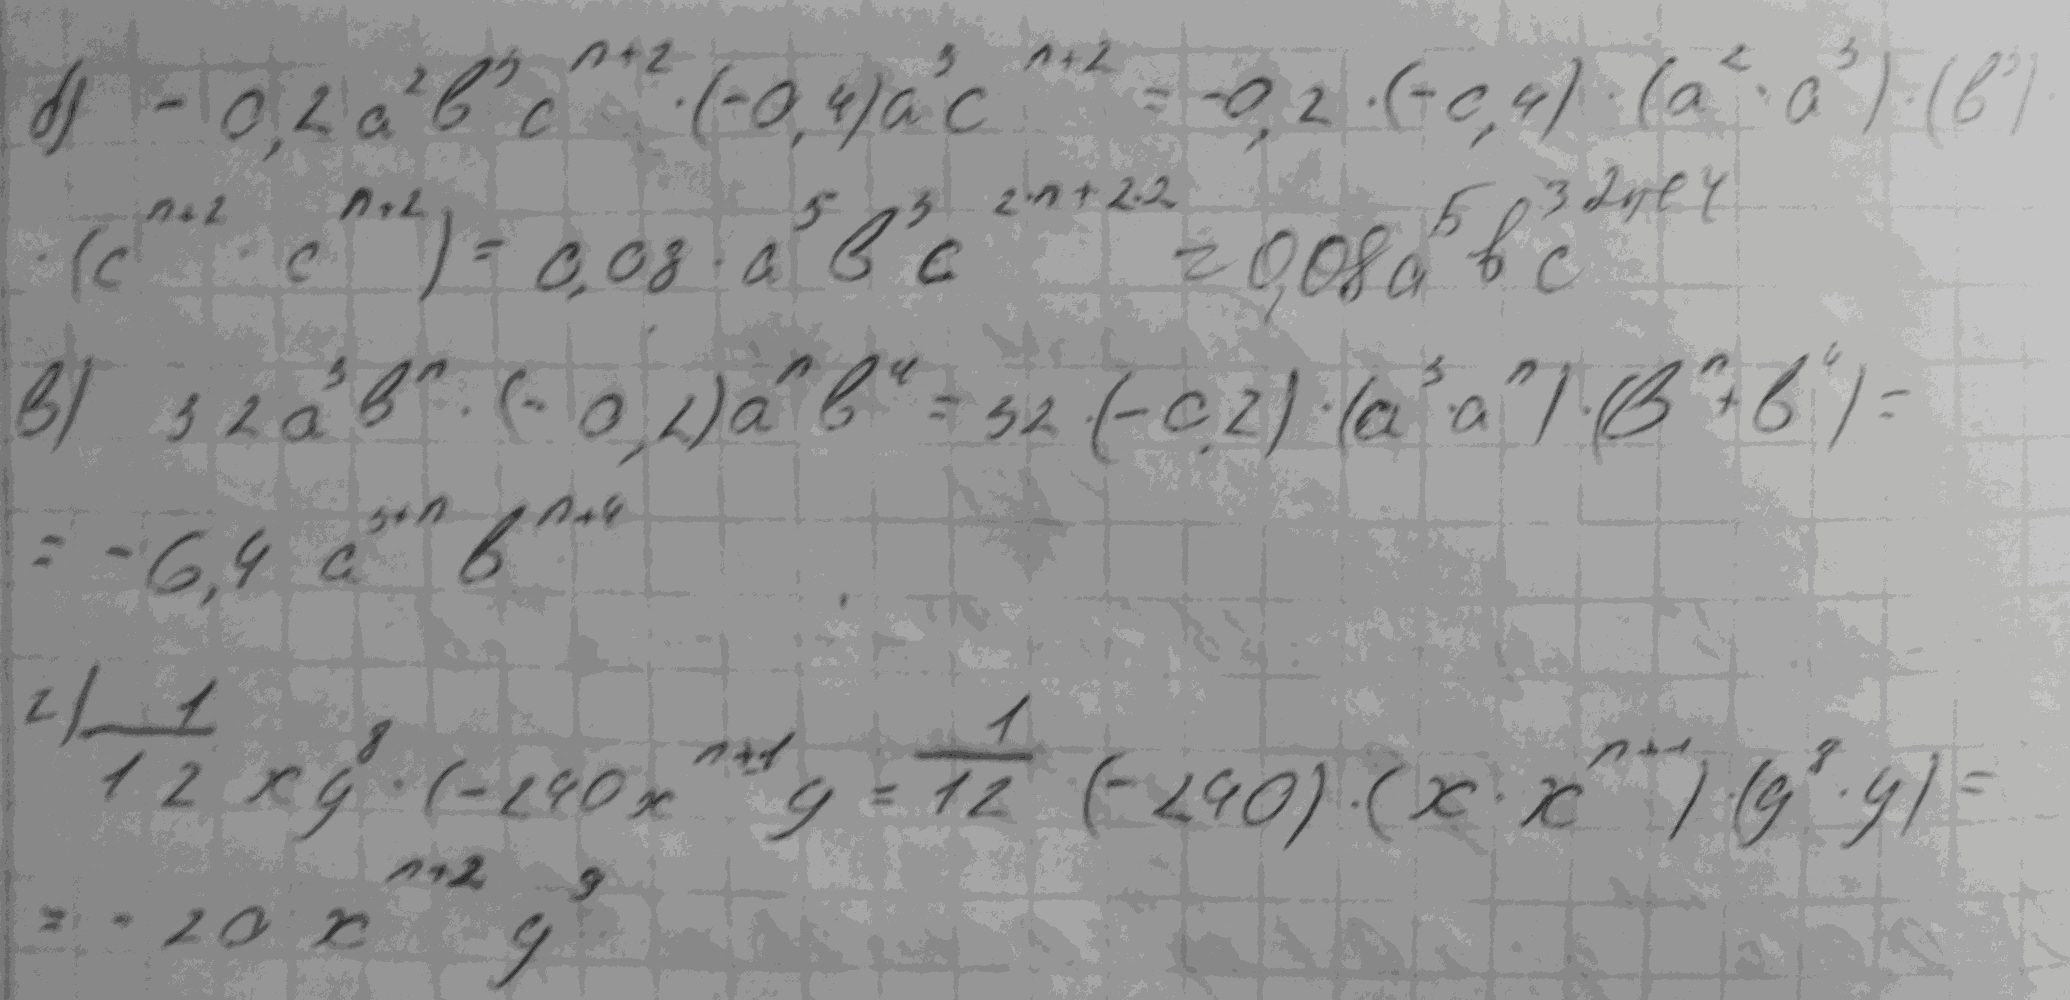 б) -0,2a²b³c^{n+2}·(-0,4)a³c^{n+2} = -0,2·(-0,4)·(a²·a³)·(b³)·
·(c^{n+2}·c^{n+2}) = 0,08·a⁵b³c^{2·n+2·2} = 0,08a⁵b³c^{2n+4}
в) 32a³bⁿ·(-0,2)aⁿb⁴ = 32·(-0,2)·(a³·aⁿ)·(bⁿ+b⁴) =
= -6,4 a^{3+n} b^{n+4}
г) 1/12 xy⁸·(-240x^{n+1}y = 1/12 (-240)·(x·x^{n+1})·(y⁸·y) =
= -20 x^{n+2} y⁹